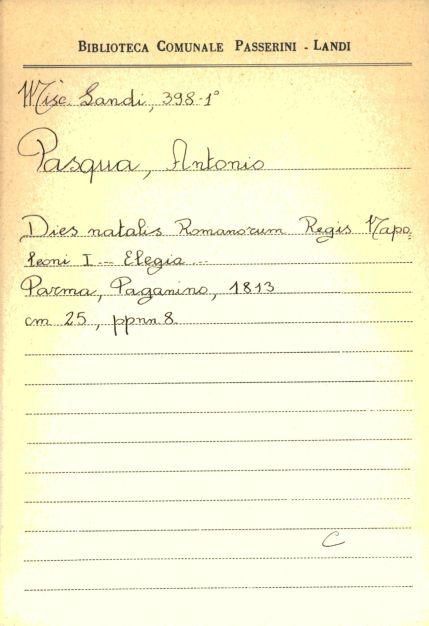 BIBLIOTECA COMUNALE PASSERINI - LANDI
Misc. Landi, 398-1°
Pasqua, Antonio
Dies natalis Romanorum Regis Napo
leoni I --- Elegia ---
Parma, Paganino, 1813
cm 25, ppnn 8
C